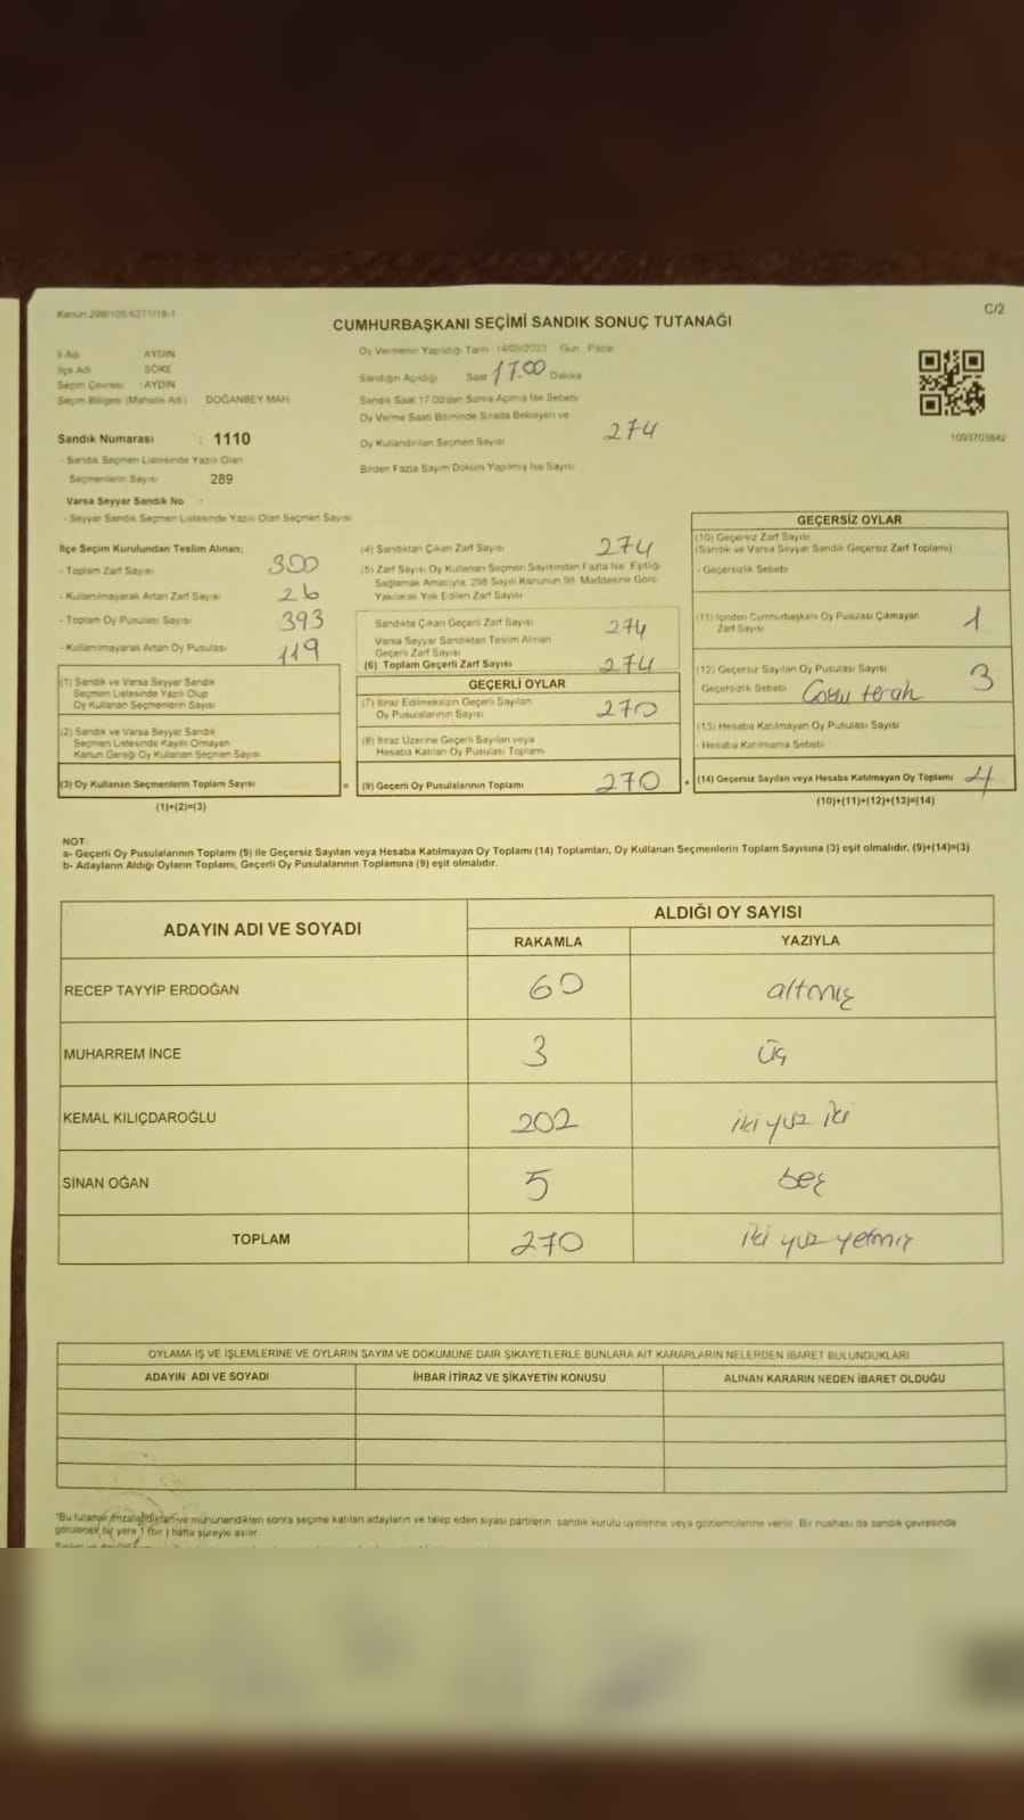 Kanun 298/105
C/2
CUMHURBAŞKANI SEÇİMİ SANDIK SONUÇ TUTANAĞI
İl Adı AYDIN
İlçe Adı SÖKE
Seçim Çevresi : AYDIN
Seçim Bölgesi (Mahalle Adı) DOĞANBEY MAH.
Sandık Numarası : 1110
- Sandık Seçmen Listesinde Yazılı Olan
Seçmenlerin Sayısı 289
Varsa Seyyar Sandık No :
- Seyyar Sandık Seçmen Listesinde Yazılı Olan Seçmen Sayısı
Oy Vermenin Yapıldığı Tarih 14/05/2023 Gün Pazar
Sandığın Açıldığı Saat 17.00 Dakika
Sandık Saat 17.00'den Sonra Açılmış İse Sebebi
Oy Verme Saati Bitiminde Sırada Bekleyen ve
Oy Kullandırılan Seçmen Sayısı 274
Birden Fazla Sayım Döküm Yapılmış İse Sayısı
İlçe Seçim Kurulundan Teslim Alınan;
- Toplam Zarf Sayısı 300
- Kullanılmayarak Artan Zarf Sayısı 26
- Toplam Oy Pusulası Sayısı 393
- Kullanılmayarak Artan Oy Pusulası 119
(1) Sandık ve Varsa Seyyar Sandık
Seçmen Listesinde Yazılı Olup
Oy Kullanan Seçmenlerin Sayısı
(2) Sandık ve Varsa Seyyar Sandık
Seçmen Listesinde Kayıtlı Olmayan
Kanun Gereği Oy Kullanan Seçmen Sayısı
(3) Oy Kullanan Seçmenlerin Toplam Sayısı =
(1)+(2)=(3)
(4) Sandıktan Çıkan Zarf Sayısı 274
(5) Zarf Sayısı Oy Kullanan Seçmen Sayısından Fazla İse, Eşitliği
Sağlamak Amacıyla, 298 Sayılı Kanunun 98. Maddesine Göre
Yakılarak Yok Edilen Zarf Sayısı
Sandıkta Çıkan Geçerli Zarf Sayısı 274
Varsa Seyyar Sandıktan Teslim Alınan
Geçerli Zarf Sayısı
(6) Toplam Geçerli Zarf Sayısı 274
GEÇERLİ OYLAR
(7) İtiraz Edilmeksizin Geçerli Sayılan
Oy Pusulalarının Sayısı 270
(8) İtiraz Üzerine Geçerli Sayılan veya
Hesaba Katılan Oy Pusulası Toplamı
(9) Geçerli Oy Pusulalarının Toplamı 270 +
GEÇERSİZ OYLAR
(10) Geçersiz Zarf Sayısı
(Sandık ve Varsa Seyyar Sandık Geçersiz Zarf Toplamı)
- Geçersizlik Sebebi
(11) İçinden Cumhurbaşkanı Oy Pusulası Çıkmayan
Zarf Sayısı 1
(12) Geçersiz Sayılan Oy Pusulası Sayısı 3
Geçersizlik Sebebi
(13) Hesaba Katılmayan Oy Pusulası Sayısı
- Hesaba Katılmama Sebebi
(14) Geçersiz Sayılan veya Hesaba Katılmayan Oy Toplamı 4
(10)+(11)+(12)+(13)=(14)
NOT:
a- Geçerli Oy Pusulalarının Toplamı (9) ile Geçersiz Sayılan veya Hesaba Katılmayan Oy Toplamı (14) Toplamları, Oy Kullanan Seçmenlerin Toplam Sayısına (3) eşit olmalıdır. (9)+(14)=(3)
b- Adayların Aldığı Oyların Toplamı, Geçerli Oy Pusulalarının Toplamına (9) eşit olmalıdır.
ADAYIN ADI VE SOYADI
ALDIĞI OY SAYISI
RAKAMLA YAZIYLA
RECEP TAYYİP ERDOĞAN 60 altmış
MUHARREM İNCE 3 üç
KEMAL KILIÇDAROĞLU 202 iki yüz iki
SİNAN OĞAN 5 beş
TOPLAM 270 iki yüz yetmiş
OYLAMA İŞ VE İŞLEMLERİNE VE OYLARIN SAYIM VE DÖKÜMÜNE DAİR ŞİKAYETLERLE BUNLARA AİT KARARLARIN NELERDEN İBARET BULUNDUKLARI
ADAYIN ADI VE SOYADI İHBAR İTİRAZ VE ŞİKAYETİN KONUSU ALINAN KARARIN NEDEN İBARET OLDUĞU
*Bu tutanak imzalandıktan ve mühürlendikten sonra seçime katılan adayların ve talep eden siyasi partilerin, sandık kurulu üyelerine veya gözlemcilerine verilir. Bir nüshası da sandık çevresinde
görülecek bir yere 1 (bir) hafta süreyle asılır.